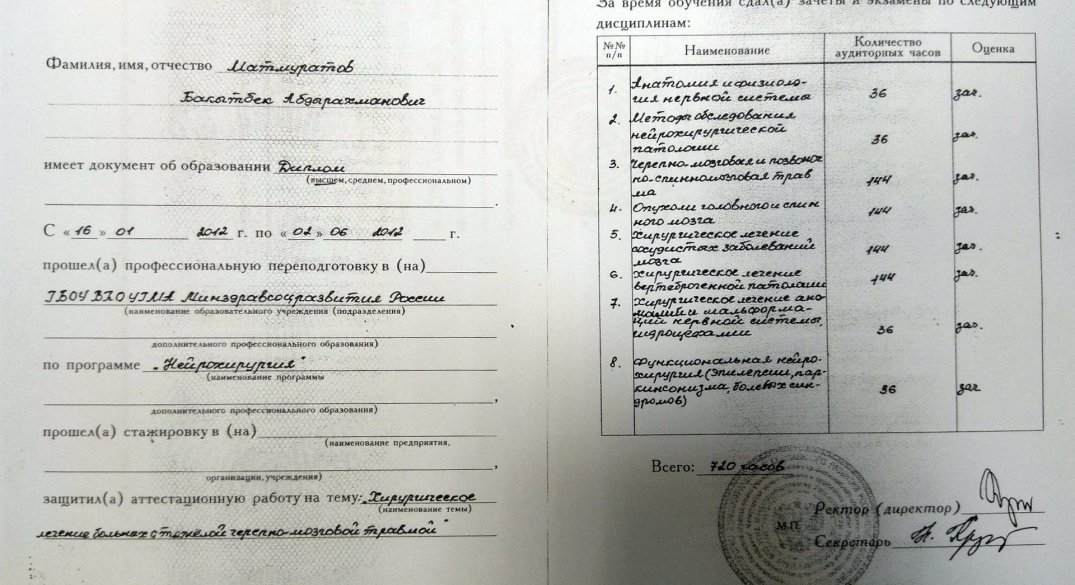 Фамилия, имя, отчество Матмуратов
Бакытбек Абдырахманович
имеет документ об образовании Диплом
(высшем, среднем, профессиональном)
С «16» 01 2012 г. по «02» 06 2012 г.
прошел(а) профессиональную переподготовку в (на)
ГБОУ ВПО УГМА Минздравсоцразвития России
(наименование образовательного учреждения (подразделения)
дополнительного профессионального образования)
по программе „Нейрохирургия"
(наименование программы
дополнительного профессионального образования)
прошел(а) стажировку в (на)
(наименование предприятия,
организации, учреждения)
защитил(а) аттестационную работу на тему: „Хирургическое
(наименование темы)
лечение больных с тяжёлой черепно-мозговой травмой"
За время обучения сдал(а) зачеты и экзамены по следующим
дисциплинам:
№№ п/п Наименование Количество аудиторных часов Оценка
1. Анатомия и физиоло-
гия нервной системы 36 зач.
2. Методы обследования
нейрохирургической
патологии 36 зач.
3. Черепно-мозговая и позвоно-
но-спинномозговая трав
ма 144 зач.
4. Опухоли головного и спин
ного мозга 144 зач.
5. Хирургическое лечение
сосудистых заболеваний
мозга 144 зач.
6. Хирургическое лечение
вертеброгенной патологии 144 зач.
7. Хирургическое лечение ано-
малий и мальформа-
ций нервной системы,
гидроцефалии 36 зач.
8. Функциональная нейро-
хирургия (эпилепсии, пар-
кинсонизма, болевых син-
дромов) 36 зач
Всего: 720 часов
Ректор (директор)
М.П.
Секретарь